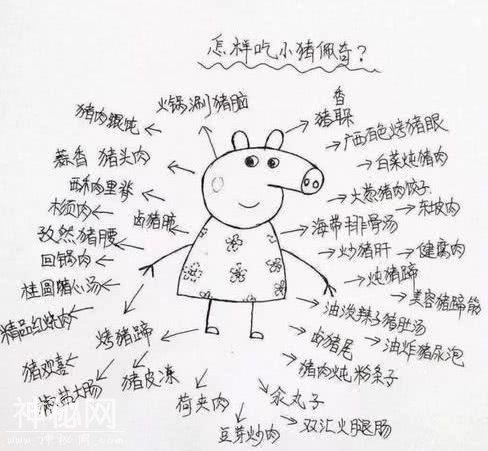 怎样吃小猪佩奇?
猪肉馄饨
火锅涮猪脑
香
猪耳
广西百色烤猪眼
蒜香 猪头肉
白菜炖猪肉
酥和肉里脊
大葱猪肉饺子
木须肉
卤猪脸
东坡肉
海带排骨汤
孜然猪腰
炒猪肝
健腐肉
回锅肉
炖猪蹄
桂圆猪心汤
美容猪蹄筋
精品红烧肉
油泼辣子猪肚汤
烤猪蹄
卤猪尾
油炸猪尿泡
猪欢喜
猪皮冻
猪肉炖粉条子
大肠
荷夹肉
汆丸子
豆芽炒肉
双汇火腿肠
神秘网